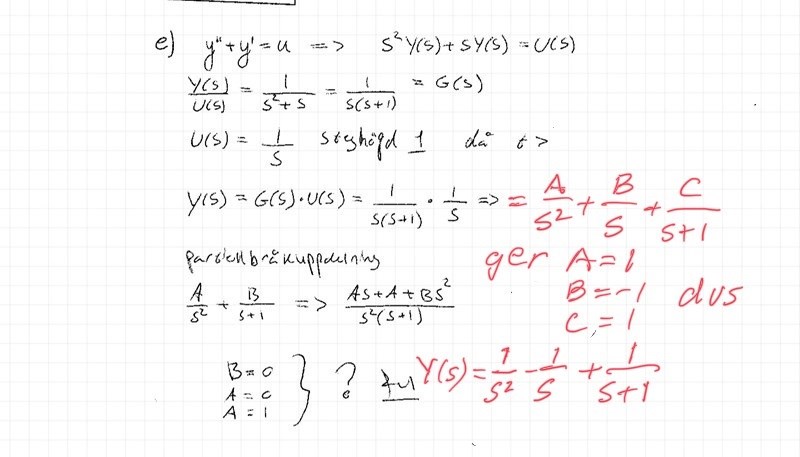 e) y'' + y' = u => s²Y(s) + sY(s) = U(s)
Y(s)/U(s) = 1/(s² + s) = 1/(s(s+1)) = G(s)
U(s) = 1/s steghöjd 1 då t >
Y(s) = G(s)·U(s) = 1/(s(s+1)) · 1/s => = A/s² + B/s + C/(s+1)
partiellbråkuppdelning
ger A = 1
B = -1 dvs
C = 1
A/s² + B/(s+1) => (As + A + Bs²)/(s²(s+1))
B = 0
A = 0
A = 1
} ?
Y(s) = 1/s² - 1/s + 1/(s+1)